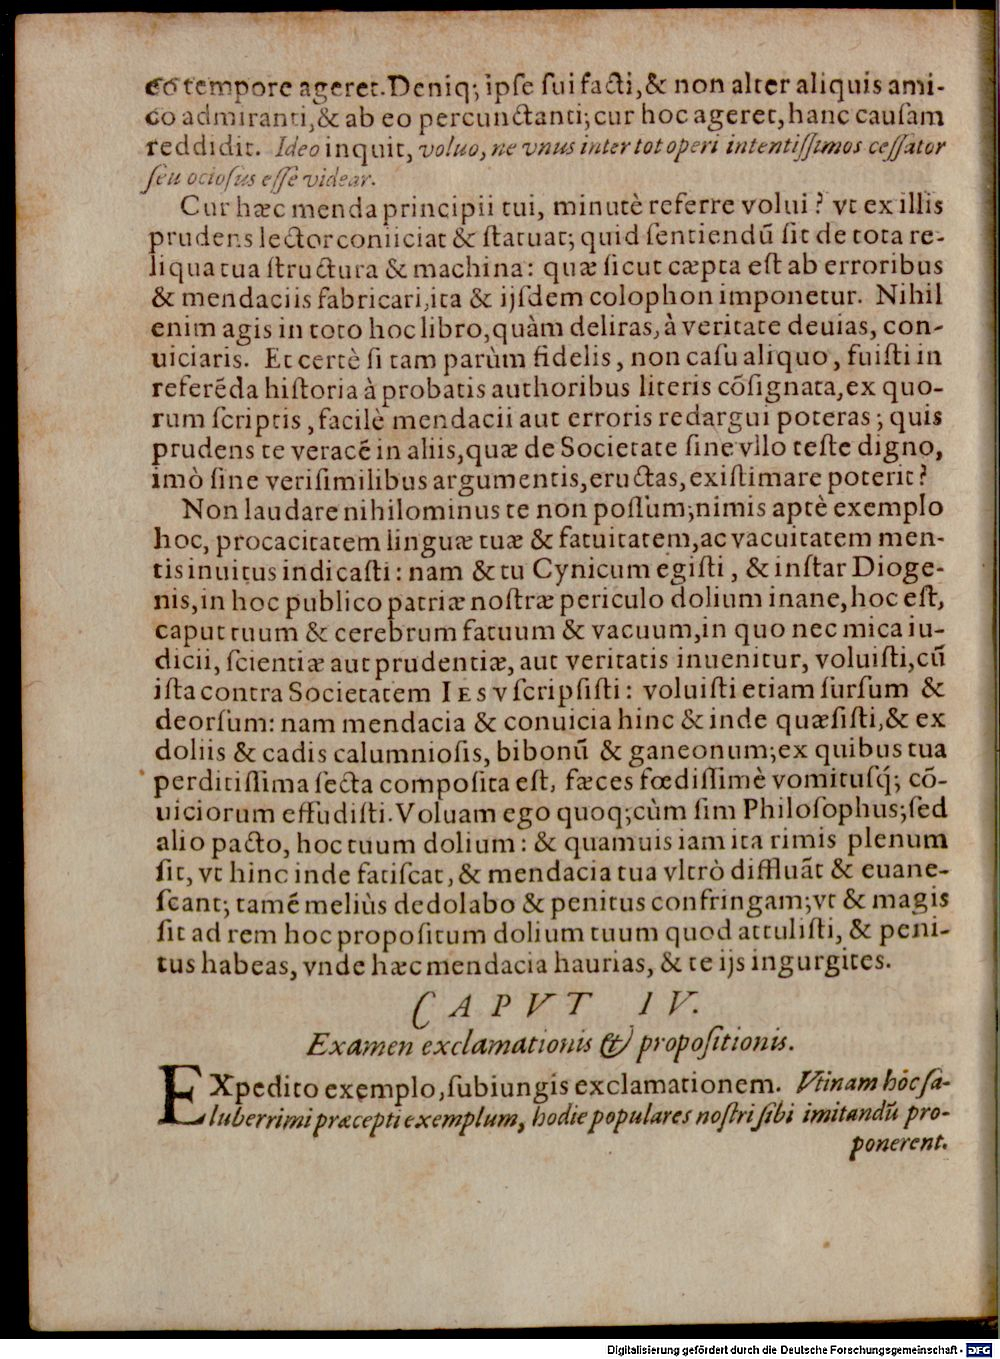 eo tempore ageret. Deniq; ipſe ſui facti, & non alter aliquis ami-
co admiranti, & ab eo percunctanti; cur hoc ageret, hanc cauſam
reddidit. Ideo inquit, voluo, ne vnus inter tot operi intentiſſimos ceſſator
ſeu ocioſus eſſe videar.
Cur hæc menda principii tui, minutè referre volui? vt ex illis
prudens lector coniiciat & ſtatuat; quid ſentiendū ſit de tota re-
liqua tua ſtructura & machina: quæ ſicut cæpta eſt ab erroribus
& mendaciis fabricari, ita & ijſdem colophon imponetur. Nihil
enim agis in toto hoc libro, quàm deliras, à veritate deuias, con-
uiciaris. Et certè ſi tam parùm fidelis, non caſu aliquo, fuiſti in
referēda hiſtoria à probatis authoribus literis cōſignata, ex quo-
rum ſcriptis, facilè mendacii aut erroris redargui poteras; quis
prudens te veracē in aliis, quæ de Societate ſine vllo teſte digno,
imò ſine veriſimilibus argumentis, eructas, exiſtimare poterit?
Non laudare nihilominus te non poſſum; nimis aptè exemplo
hoc, procacitatem linguæ tuæ & fatuitatem, ac vacuitatem men-
tis inuitus indicaſti: nam & tu Cynicum egiſti, & inſtar Dioge-
nis, in hoc publico patriæ noſtræ periculo dolium inane, hoc eſt,
caput tuum & cerebrum fatuum & vacuum, in quo nec mica iu-
dicii, ſcientiæ aut prudentiæ, aut veritatis inuenitur, voluiſti, cū
iſta contra Societatem IESV ſcripſiſti: voluiſti etiam ſurſum &
deorſum: nam mendacia & conuicia hinc & inde quæſiſti, & ex
doliis & cadis calumnioſis, bibonū & ganeonum; ex quibus tua
perditiſſima ſecta compoſita eſt, fæces fœdiſſimè vomituſq́; cō-
uiciorum effudiſti. Voluam ego quoq; cùm ſim Philoſophus; ſed
alio pacto, hoc tuum dolium: & quamuis iam ita rimis plenum
ſit, vt hinc inde fatiſcat, & mendacia tua vltrò diffluāt & euane-
ſcant; tamē meliùs dedolabo & penitus confringam; vt & magis
ſit ad rem hoc propoſitum dolium tuum quod attuliſti, & peni-
tus habeas, vnde hæc mendacia haurias, & te ijs ingurgites.
CAPVT IV.
Examen exclamationis & propoſitionis.
EXpedito exemplo, ſubiungis exclamationem. Vtinam hoc ſa-
luberrimi præcepti exemplum, hodie populares noſtri ſibi imitandū pro-
ponerent.
Digitalisierung gefördert durch die Deutsche Forschungsgemeinschaft - DFG